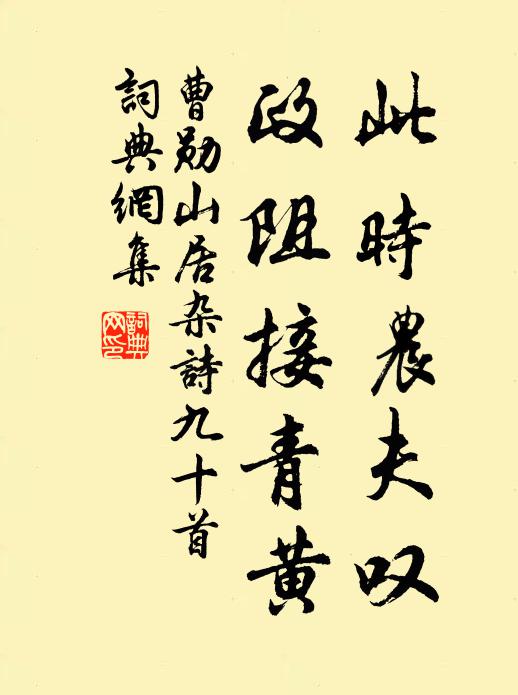 此時農夫叹
政阻接青黄
曹勋山居杂詩九十首
詞典網集
詞典網印